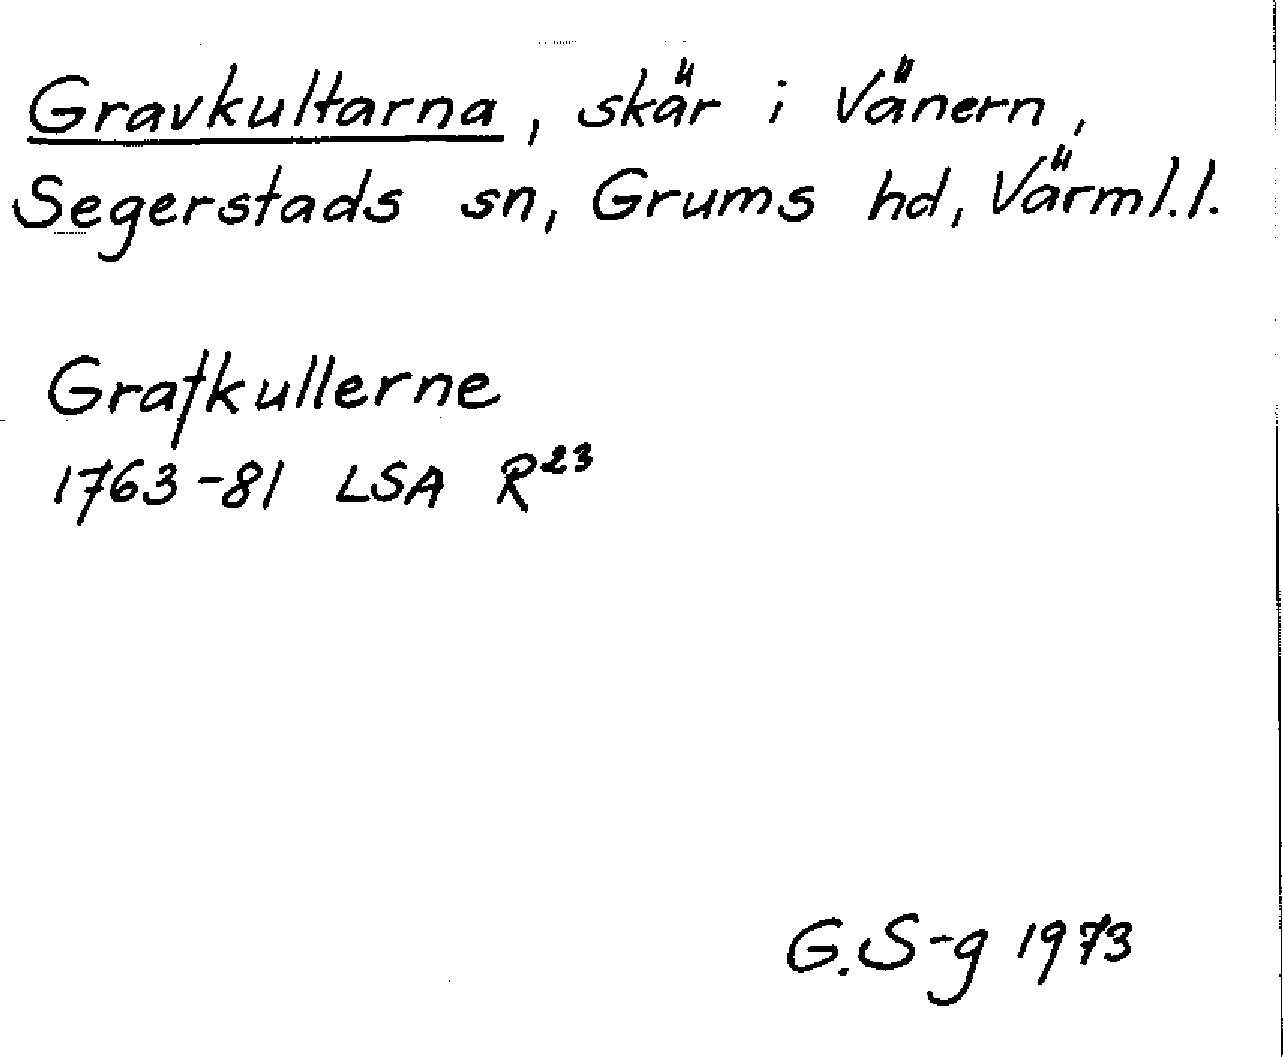 Gravkultarna, skär i Vänern,
Segerstads sn, Grums hd, Värml.l.
Grafkullerne
1763-81 LSA R²³
G.S-g 1973